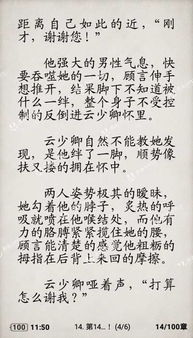 距离自己如此的近，“刚
才，谢谢您！”
他强大的男性气息，快
要吞噬她的一切，顾言伸手
想推开，结果脚下不知道被
什么一绊，整个身子不受控
制的反倒进云少卿怀里。
云少卿自然不能教她发
现，是他绊了一脚，顺势像
扶又搂的拥在怀中。
两人姿势极其的暧昧，
她勾着他的脖子，炙热的呼
吸就喷在他喉结处，而他有
力的胳膊紧紧揽住她的腰，
顾言能清楚的感觉他粗粝的
拇指在后背上来回的摩擦。
云少卿哑着声，“打算
怎么谢我？”
100 11:50 14. 第14..！(4/6) 14/100章